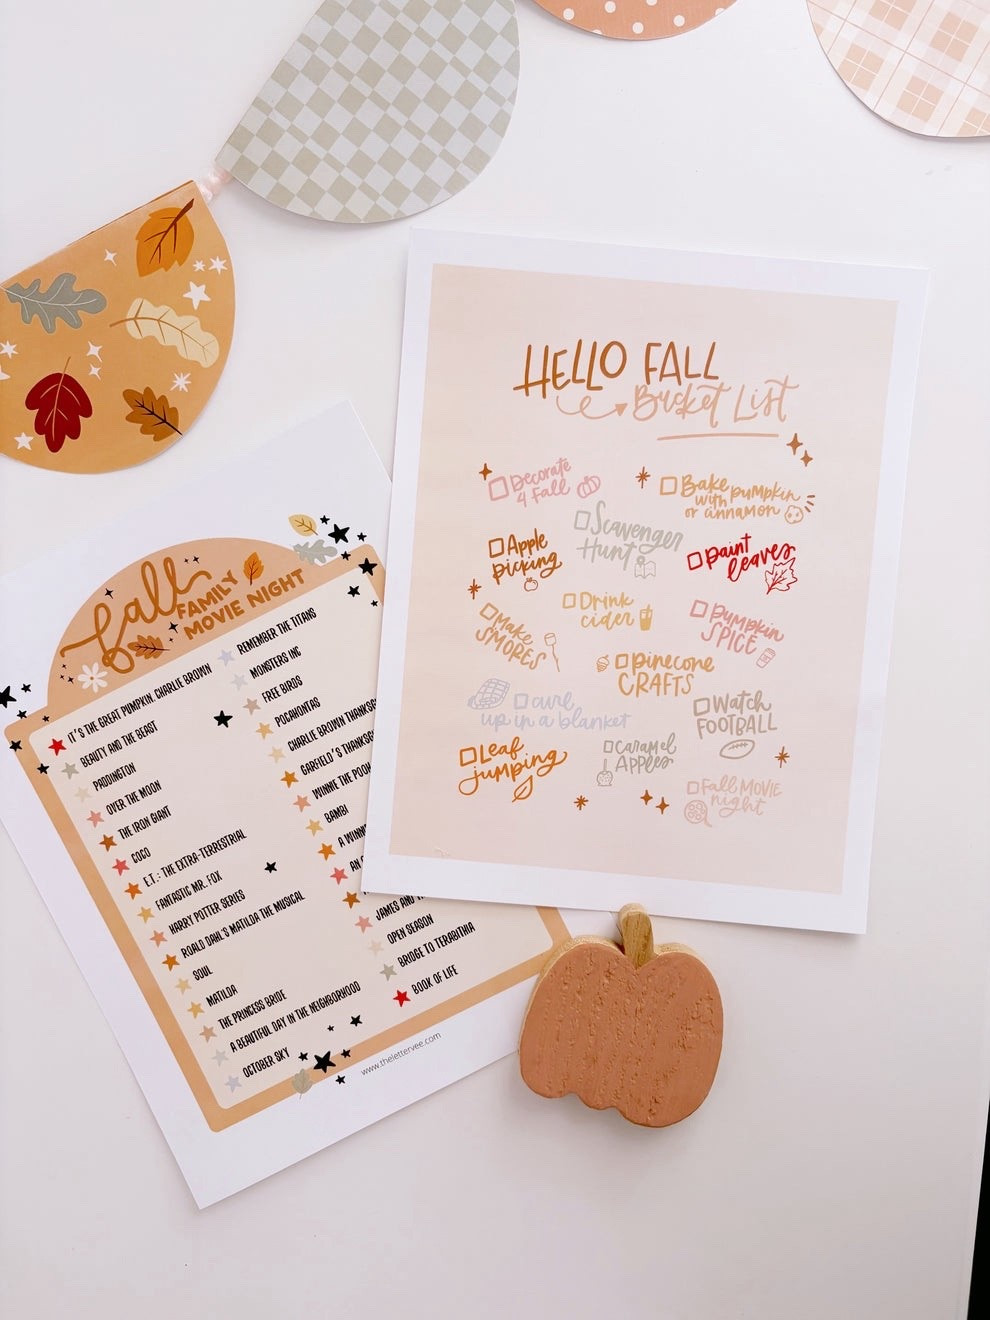 HELLO FALL
Bucket List
Decorate
4 Fall
Bake
with pumpkin
or cinnamon
Scavenger
Hunt
Apple
picking
paint
leaves
Drink
cider
Make
S'MORES
Pumpkin
SPICE
pinecone
CRAFTS
curl
up in a blanket
Watch
FOOTBALL
Leaf
jumping
CARAMEL
APPLES
Fall MOVIE
night
fall
FAMILY
MOVIE NIGHT
IT'S THE GREAT PUMPKIN CHARLIE BROWN
BEAUTY AND THE BEAST
PADDINGTON
OVER THE MOON
THE IRON GIANT
COCO
E.T.: THE EXTRA-TERRESTRIAL
FANTASTIC MR. FOX
HARRY POTTER SERIES
ROALD DAHL'S MATILDA THE MUSICAL
SOUL
MATILDA
THE PRINCESS BRIDE
A BEAUTIFUL DAY IN THE NEIGHBORHOOD
OCTOBER SKY
REMEMBER THE TITANS
MONSTERS INC
FREE BIRDS
POCAHONTAS
CHARLIE BROWN THANKSG
GARFIELD'S THANKS
WINNIE THE POOH
BAMBI
A WINN
AN
JAMES AND
OPEN SEASON
BRIDGE TO TERABITHIA
BOOK OF LIFE
www.thelettervee.com